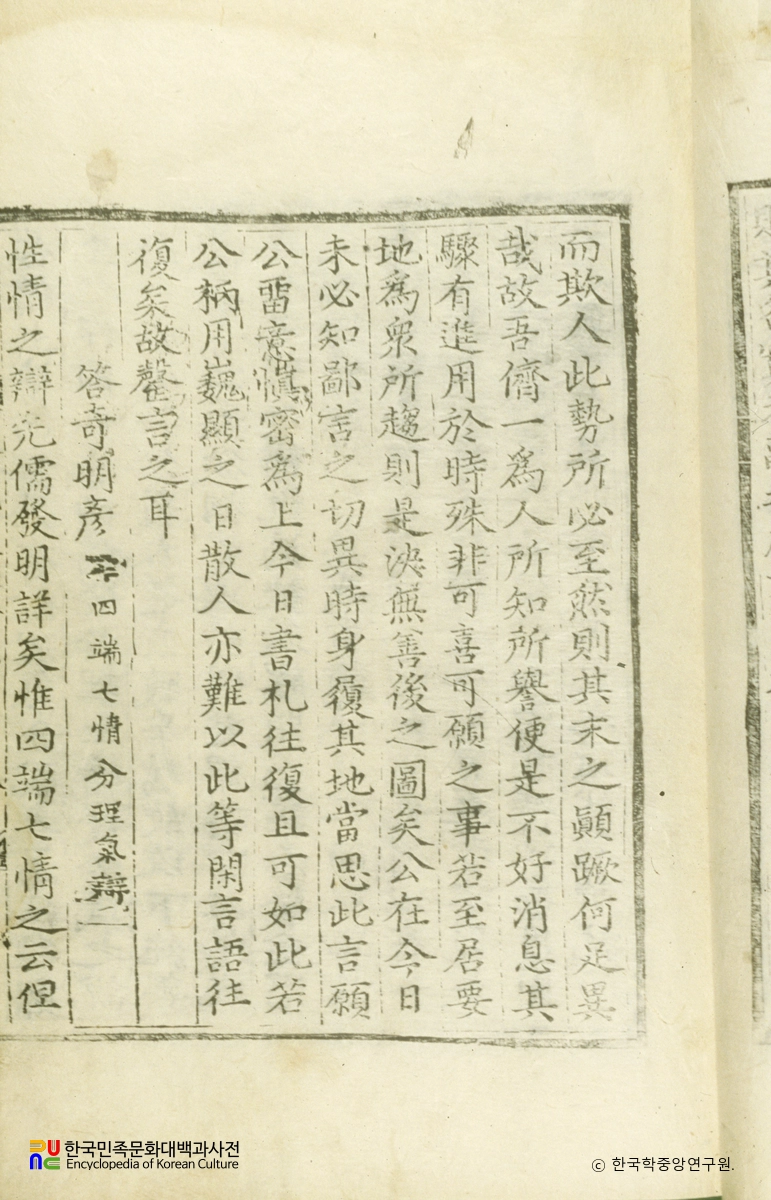 而欺人此勢所必至然則其末之顚蹶何足異
哉故吾儕一爲人所知所譽便是不好消息其
驟有進用於時殊非可喜可願之事若至居要
地爲衆所趨則是決無善後之圖矣公在今日
未必知鄙言之切異時身履其地當思此言願
公留意愼密爲上今日書札往復且可如此若
公柄用巍顯之日散人亦難以此等閑言語往
復矣故罄言之耳
答奇明彦 四端七情分理氣辯
性情之辯先儒發明詳矣惟四端七情之云但
한국민족문화대백과사전
Encyclopedia of Korean Culture
© 한국학중앙연구원.